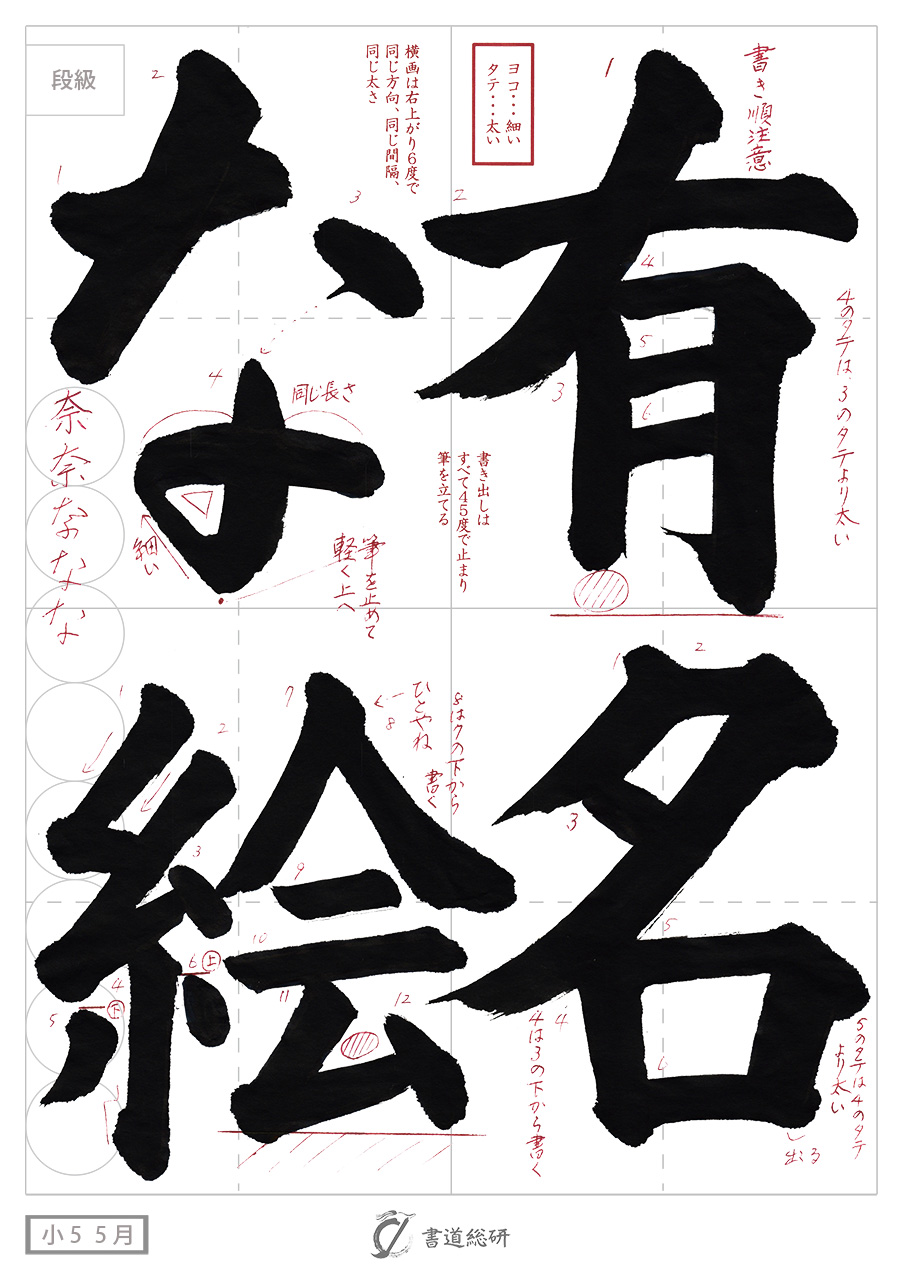 有名
な絵
書き順注意
ヨコ・・・細い
タテ・・・太い
横画は右上がり6度で
同じ方向、同じ間隔、
同じ太さ
段級
1
2
3
4
5
6
4のタテは、3のタテより太い
1
2
3
4
同じ長さ
細い
筆を止めて
軽く上へ
書き出しは
すべて45度で止まり
筆を立てる
奈奈なな な
1
2
3
4
5
4のは3の下から書く
5のタテは4のタテ
より太い
出る
1
2
3
4
下
5
6
上
7
8
9
10
11
12
ひとやね
8は7の下から
書く
小5 5月
書道総研